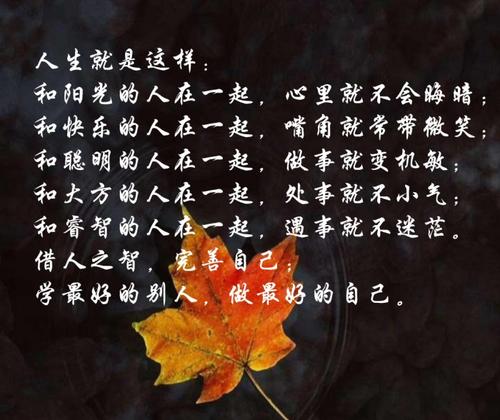 人生就是这样：
和阳光的人在一起，心里就不会晦暗；
和快乐的人在一起，嘴角就常带微笑；
和聪明的人在一起，做事就变机敏；
和大方的人在一起，处事就不小气；
和睿智的人在一起，遇事就不迷茫。
借人之智，完善自己；
学最好的别人，做最好的自己。